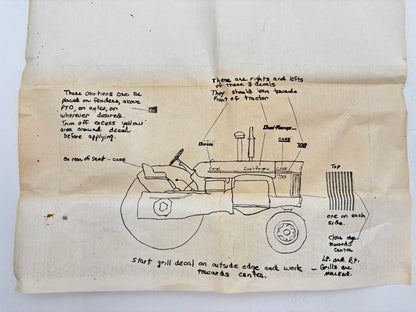 There are rights and lefts
of these 3 decals
They should lean towards
front of tractor
These cautions can be
placed on fenders, above
PTO, on axles, or
wherever desired.
Trim off excess yellow
area around decal
before applying.
Dual-Range
Diesel
CASE
700
on rear of seat - CASE
Diesel
Dual-Range
CASE
700
Top
one on each
side.
towards
center
L.H. and R.H.
Grills are
marked.
Start grill decal on outside edge and work
towards center.